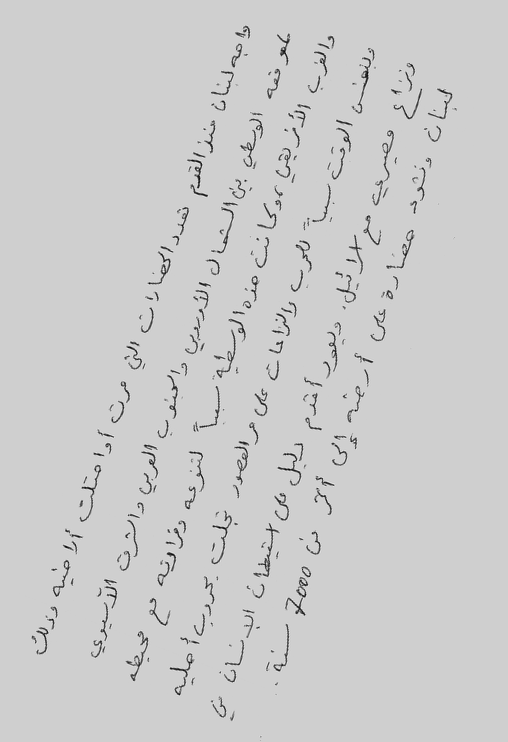 واجه لبنان منذ القدم تعدد الحضارات التي مرت أو احتلت أراضيه وذلك
لموقعه الوسطي بين الشمال الأوروبي والجنوب العربي والشرق الآسيوي
والغرب الأفريقي، وكانت هذه الوسطية سبباً لتنوعه وفرادته مع محيطه
وبنفس الوقت سبباً للحرب والنزاعات على مر العصور تجلت بحروب أهلية
ونزاع مصيري مع اسرائيل. ويعود أقدم دليل على استيطان الانسان في
لبنان ونشوء حضارة على أرضه إلى أكثر من 7000 سنة.